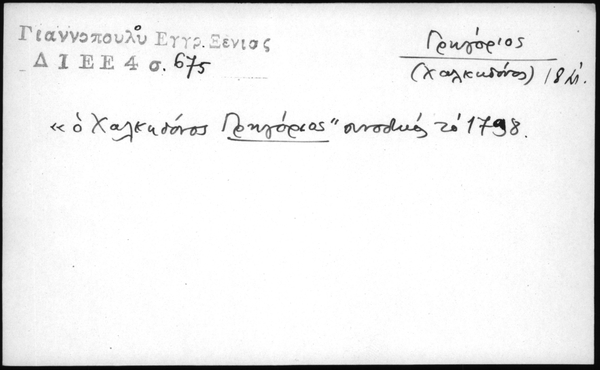 Γιαννοπουλου Εγγρ. Ξενιας
Δ Ι Ε Ε 4 σ. 675
Γρηγόριος
(Χαλκηδόνος) 18 αἰ.
«ὁ Χαλκηδόνος Γρηγόριος" συνοδικός τῷ 1798.